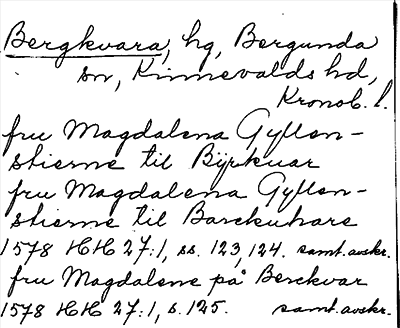 Bergkvara, hg, Bergunda
sn, Kinnevalds hd,
Kronob. l.
fru Magdalena Gyllen-
stierne til Byrkuar
fru Magdalena Gyllen-
stierne til Barckuhare
1578 HH 27:1, ss. 123, 124. samt.avskr.
fru Magdalene på Berckvar
1578 HH 27:1, s. 125. samt.avskr.